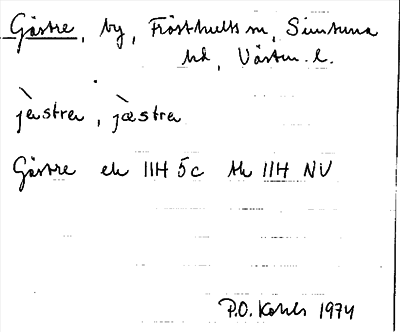 Gästre, by, Frösthults sn, Simtuna
hd, Västm. l.
jæ̀stra, jæ̀stra
Gästre ek 11H 5c tk 11H NV
P.O. Kohls 1974